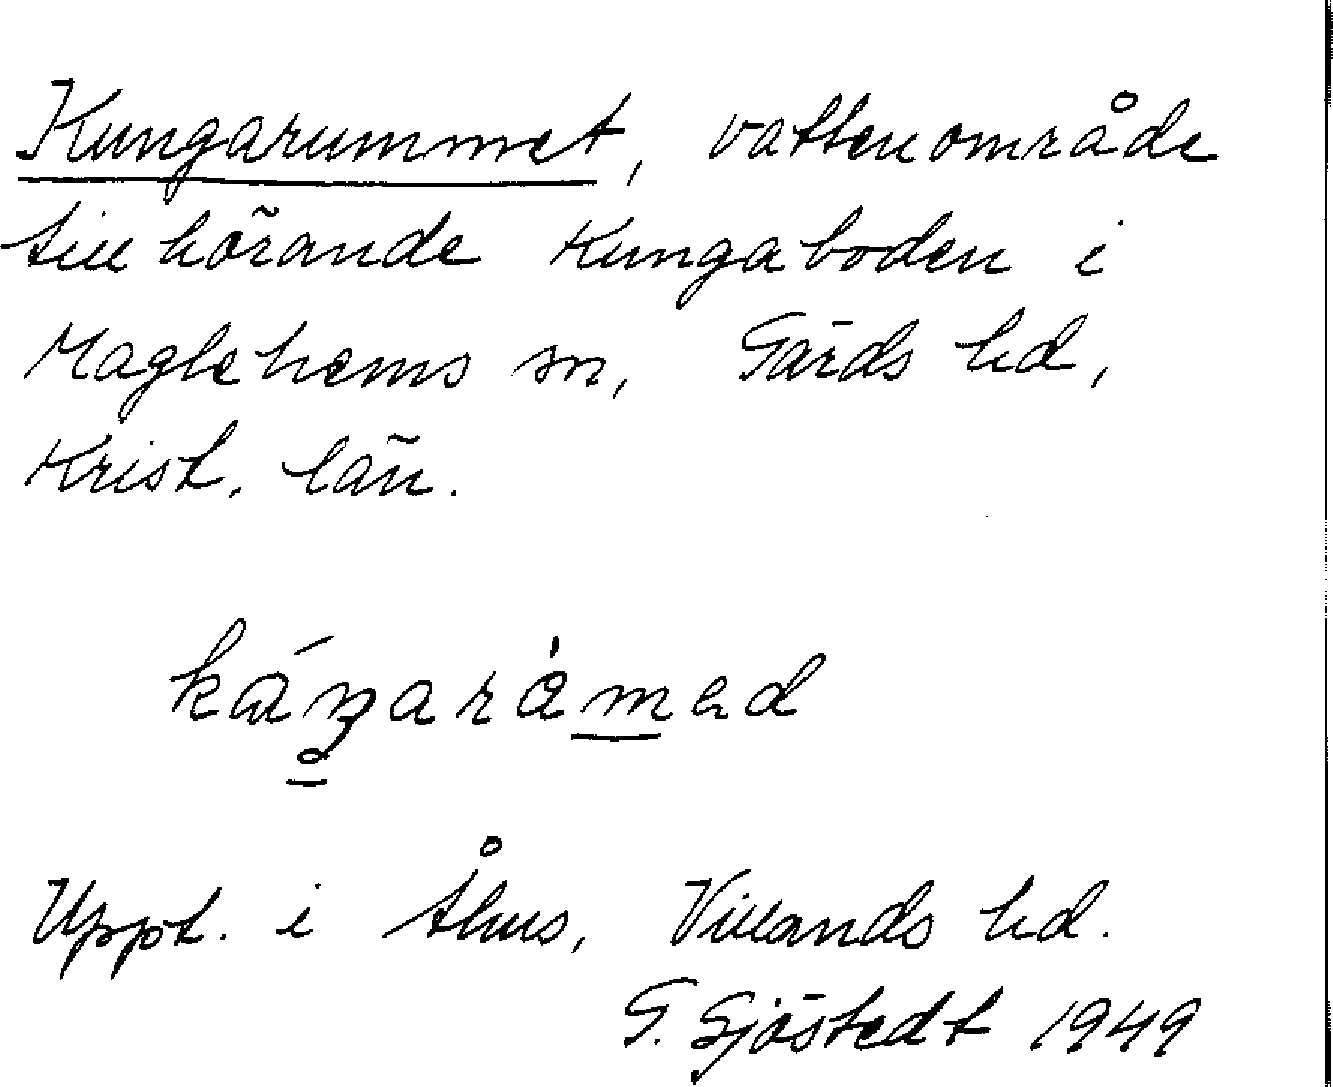 Kungarummet, vattenområde
tillhörande Kungaboden i
Maglehems sn, Gärds hd,
Krist. län.
Uppt. i Åhus, Villands hd.
G. Sjöstedt 1949